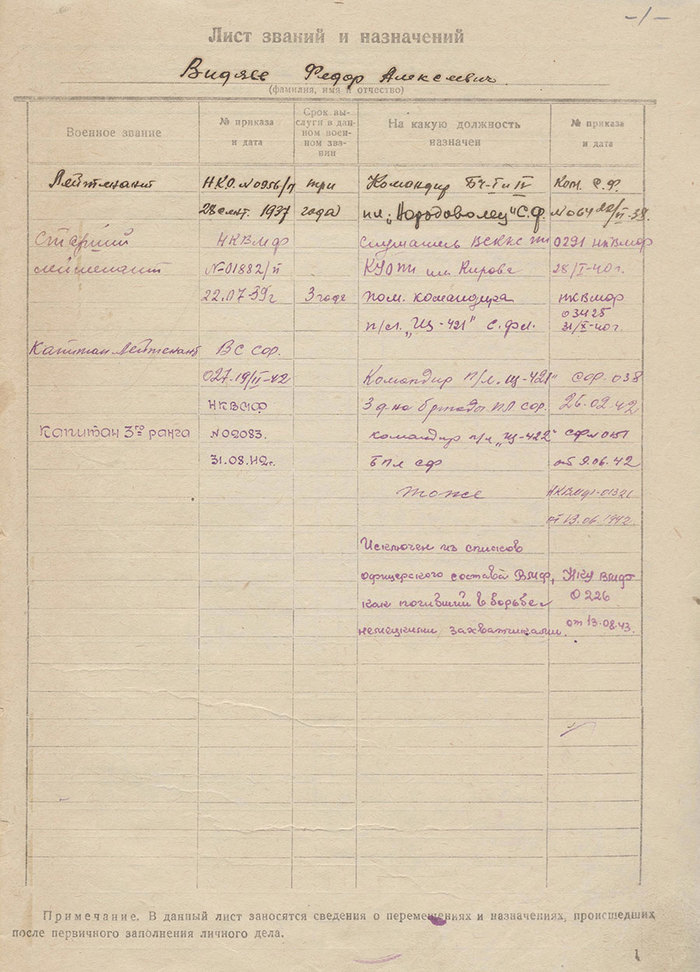 -1-
Лист званий и назначений
Видяев Федор Алексеевич
(фамилия, имя и отчество)
Военное звание
№ приказа
и дата
Срок вы-
слуги в дан-
ном воен-
ном зва-
нии
На какую должность
назначен
№ приказа
и дата
Лейтенант НКО. №0956/п три Командир БЧ-I и IV Ком. С.Ф.
28 сент. 1937 года пл. „Народоволец" С.Ф. №064
Старший НКВМФ слушатель 0291 НКВМФ
лейтенант №01882/п КУОПП им Кирова 28/I-40г.
22.07.39г 3 года пом. командира НКВМФ
п/л. „Щ-421" С.фл. 03425
31/X-40г.
Капитан Лейтенант ВС СФ.
027-19/II-42 Командир п/л. Щ-421" СФ. 038
НКВМФ 3 д-на бригады ПЛ СФ. 26.02.42
Капитан 3го ранга №02083. командир п/л „Щ-422"
31.08.42г. БПЛ СФ от 9.06.42
то же НКВМФ-01321
от 13.06.1942
Исключен из списков
офицерского состава ВМФ, НКУ ВМФ
как погибший в борьбе с 0226
немецкими захватчиками. от 13.08.43.
Примечание. В данный лист заносятся сведения о перемещениях и назначениях, происшедших
после первичного заполнения личного дела.
1